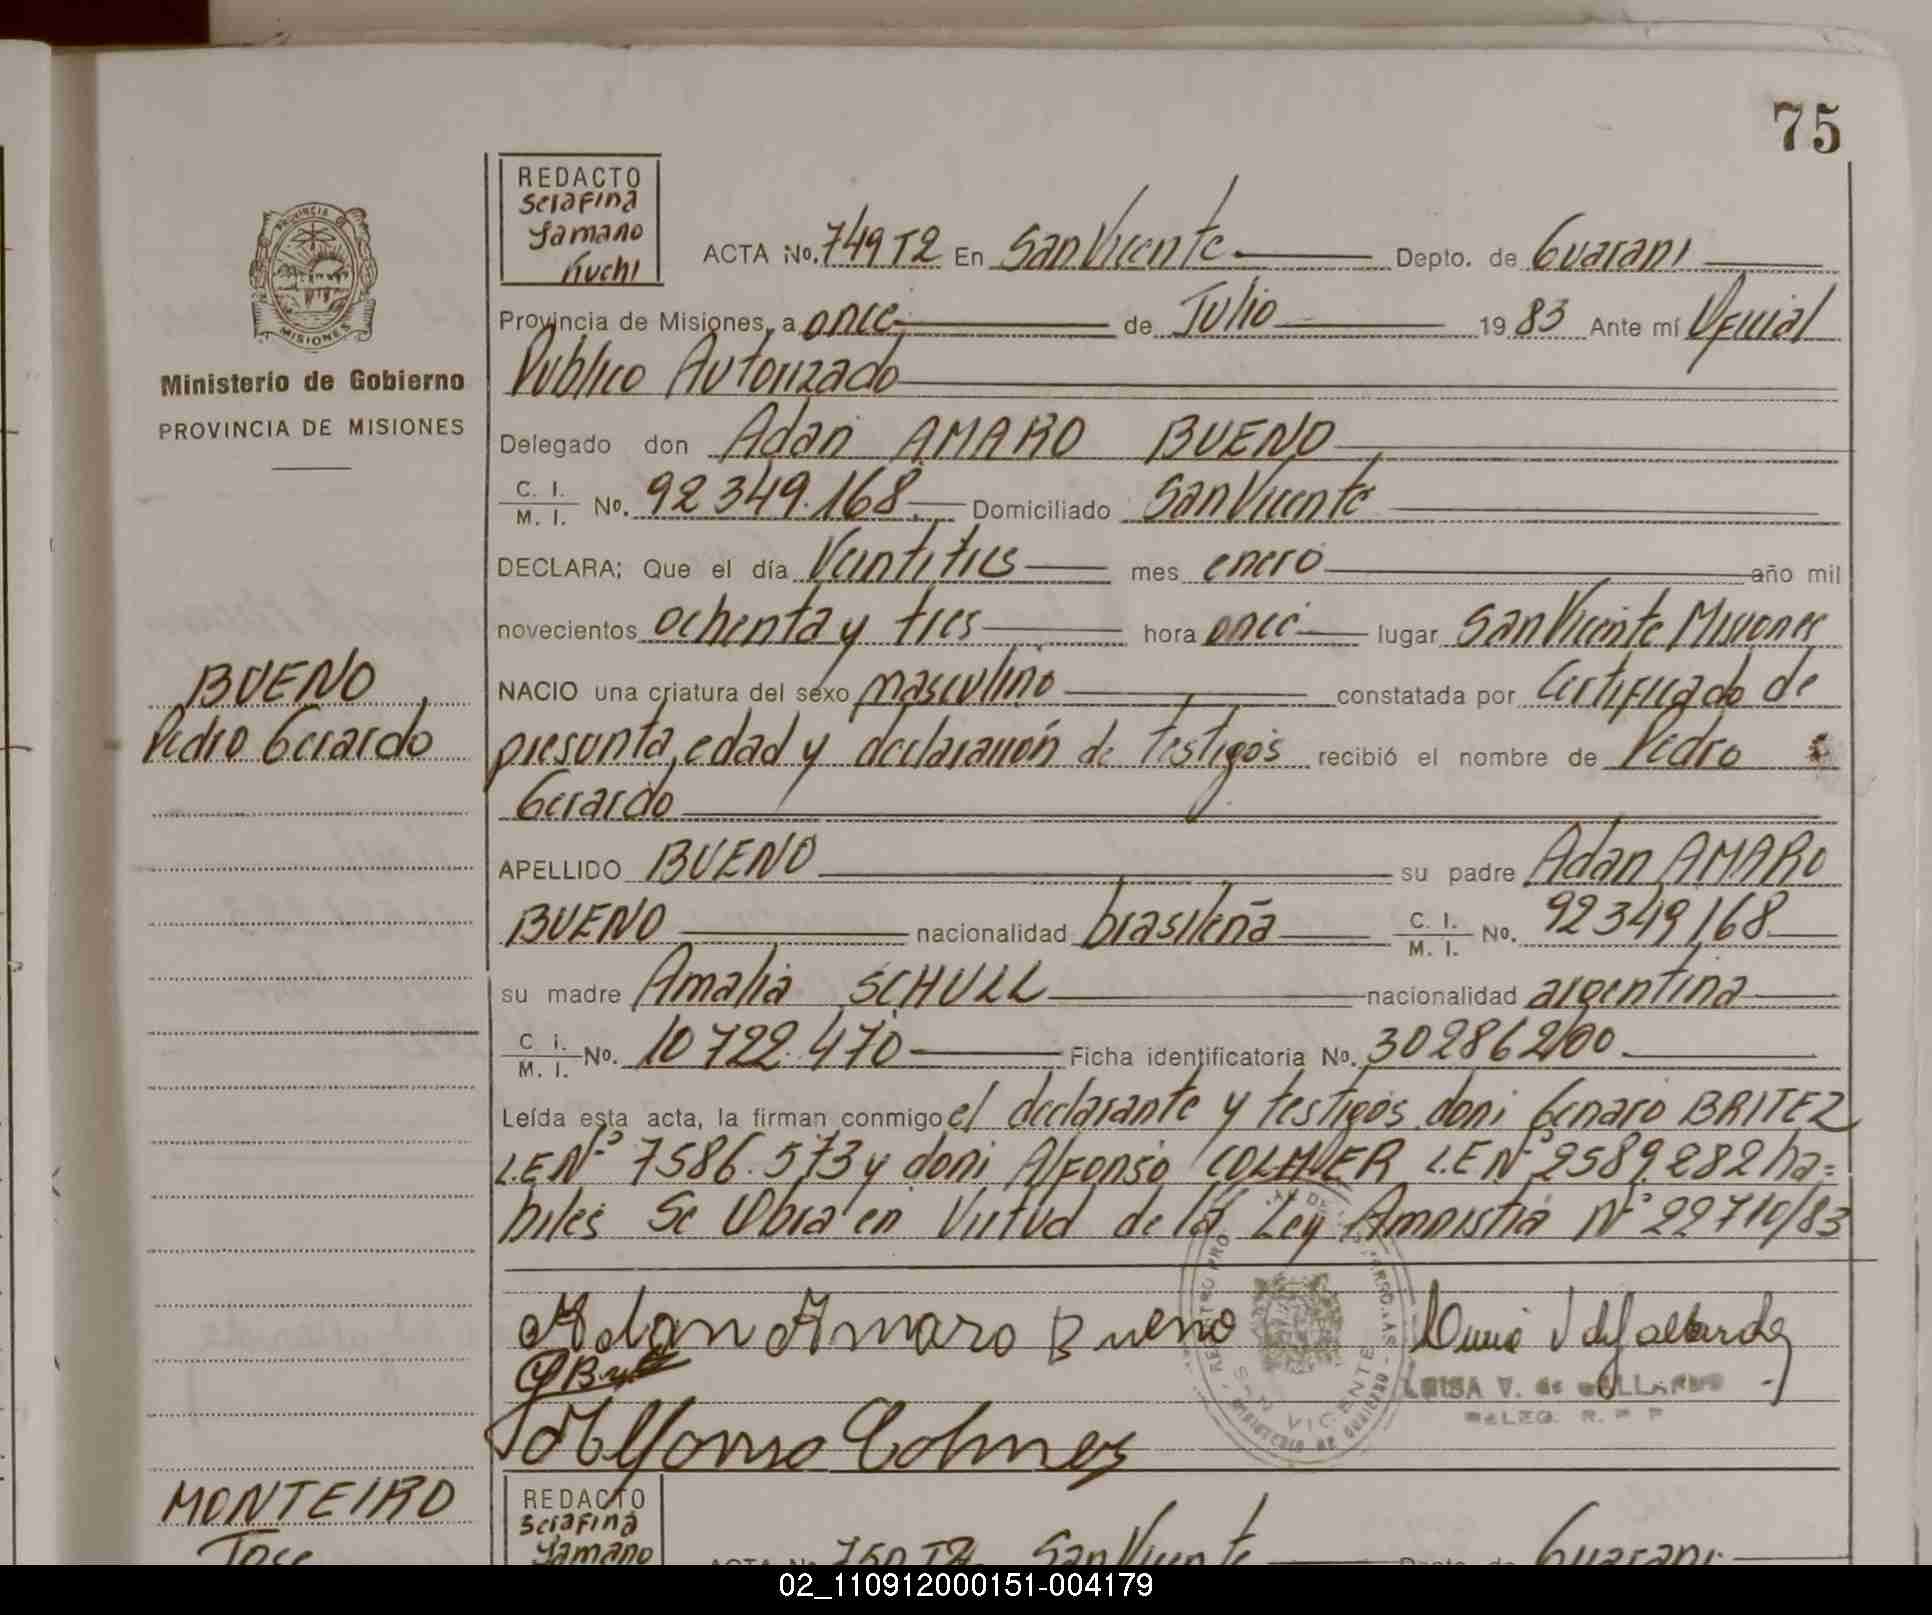 75
REDACTO
Serafina
Yamano
Kuchi
ACTA No. 749 T2 En San Vicente Depto. de Guarani
Provincia de Misiones, a once de Julio 19 83 Ante mí Oficial
Publico Autorizado
PROVINCIA DE
MISIONES
Ministerio de Gobierno
PROVINCIA DE MISIONES
Delegado don Adan AMARO BUENO
C. I. / M. I. No. 92 349.168 Domiciliado San Vicente
DECLARA: Que el día Veintitres mes enero año mil
novecientos ochenta y tres hora once lugar San Vicente Misiones
BUENO
Pedro Gerardo
NACIO una criatura del sexo masculino constatada por Certificado de
presunta edad y declaración de testigos recibió el nombre de Pedro
Gerardo
APELLIDO BUENO su padre Adan AMARO
BUENO nacionalidad brasileña C. I. / M. I. No. 92 349 168
su madre Amalia SCHULL nacionalidad argentina
C. i. / M. I. No. 10 722.470 Ficha identificatoria No. 302862/00
Leída esta acta, la firman conmigo el declarante y testigos don: Genaro BRITEZ
L.E Nº 7586.573 y don: Alfonso COLMER L.E Nº 2589.282 ha=
biles Se Obra en Virtud de la Ley Amnistia Nº 22710/83
Adan Amaro Bueno
Alfonso Colmer
SAN VICENTE
LUISA V. de GALLARDO
DELEG. R. P. P
MONTEIRO
Jose
REDACTO
Serafina
Yamano
ACTA No. 750 T2 San Vicente Depto. de Guarani
02_110912000151-004179